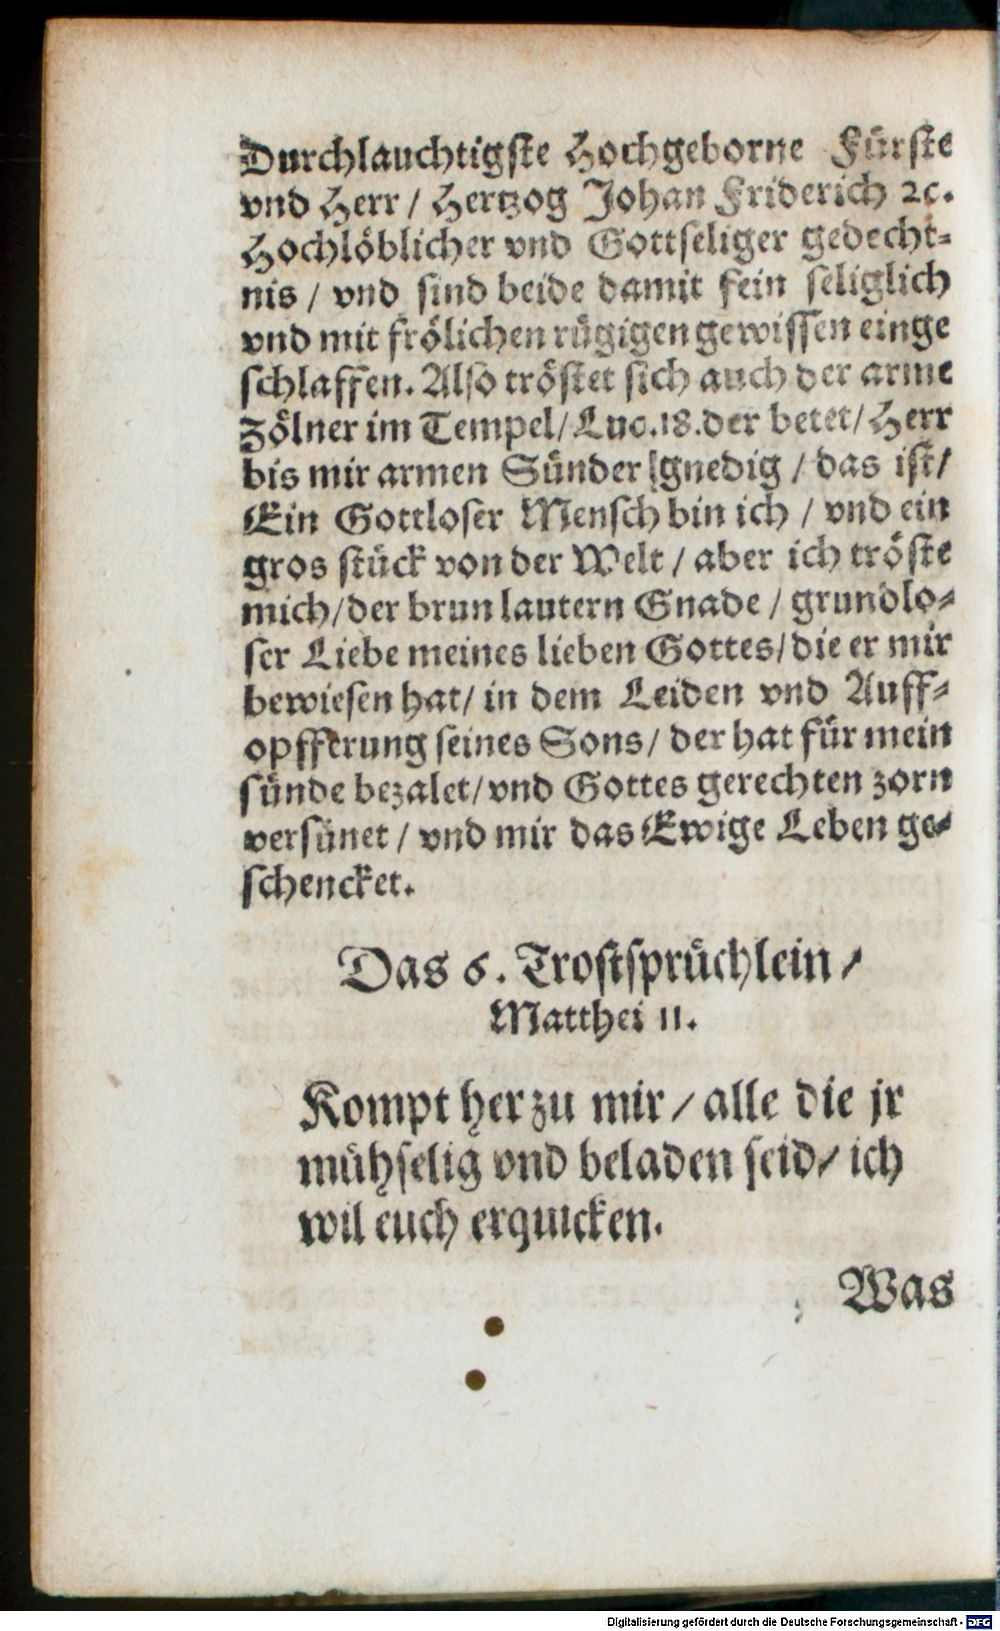 Durchlauchtigſte Hochgeborne Fürſte
vnd Herr / Hertzog Johan Friderich ꝛc.
Hochlöblicher vnd Gottſeliger gedecht⸗
nis / vnd ſind beide damit fein ſeliglich
vnd mit frölichen rügigen gewiſſen einge
ſchlaffen. Alſo tröſtet ſich auch der arme
Zölner im Tempel / Luc. 18. der betet / Herr
bis mir armen Sünder gnedig / das iſt /
Ein Gottloſer Menſch bin ich / vnd ein
gros ſtück von der Welt / aber ich tröſte
mich / der brun lautern Gnade / grundlo⸗
ſer Liebe meines lieben Gottes / die er mir
bewieſen hat / in dem Leiden vnd Auff⸗
opfferung ſeines Sons / der hat für mein
ſünde bezalet / vnd Gottes gerechten zorn
verſünet / vnd mir das Ewige Leben ge⸗
ſchencket.
Das 6. Troſtſprüchlein /
Matthei 11.
Kompt her zu mir / alle die jr
mühſelig vnd beladen ſeid / ich
wil euch erquicken.
Was
Digitalisierung gefördert durch die Deutsche Forschungsgemeinschaft - DFG